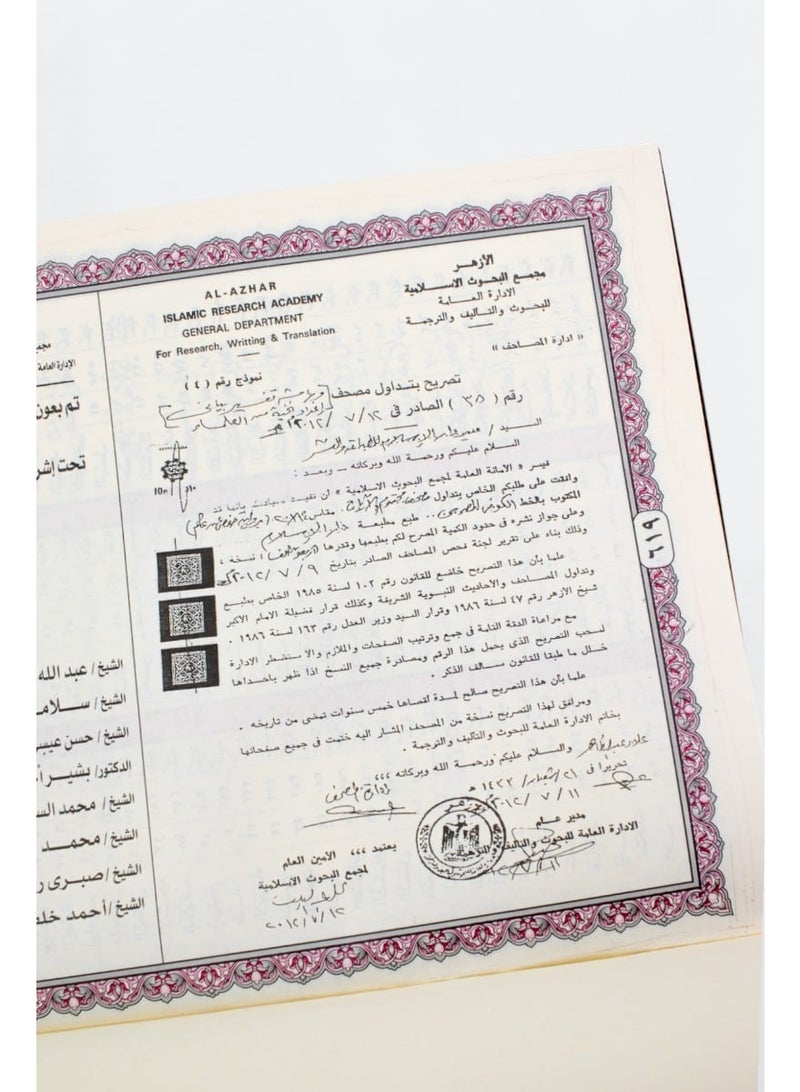 AL-AZHAR
ISLAMIC RESEARCH ACADEMY
GENERAL DEPARTMENT
For Research, Writting & Translation
الأزهر
مجمع البحوث الاسلامية
الادارة العامة
للبحوث والتأليف والترجمة
« ادارة المصاحف »
نموذج رقم (٤)
تصريح بتداول مصحف
رقم ( ٣٥ ) الصادر في ١٢ / ٧ / ٢٠١٢م
السيد /
السلام عليكم ورحمة الله وبركاته – وبعد :
« الأمانة العامة لمجمع البحوث الاسلامية » أن تفيد سيادتكم بأنها قد
وافقت على طلبكم الخاص بتداول
المكتوب بالخط طبع مطبعة
وعلى جواز نشره في حدود الكمية المصرح لكم بطبعها وقدرها نسخة ،
وذلك بناء على تقرير لجنة فحص المصاحف الصادر بتاريخ ٩ / ٧ / ٢٠١٢م
علما بأن هذا التصريح خاضع للقانون رقم ١٠٢ لسنة ١٩٨٥ الخاص بطبع
وتداول المصاحف والأحاديث النبوية الشريفة وكذلك قرار فضيلة الامام الاكبر
شيخ الازهر رقم ٤٧ لسنة ١٩٨٦ وقرار السيد وزير العدل رقم ١٦٣ لسنة ١٩٨٦ .
مع مراعاة الدقة التامة في جمع وترتيب الصفحات والملازم والا ستضطر الادارة
لسحب التصريح الذى يحمل هذا الرقم ومصادرة جميع النسخ اذا ظهر باحداها
خلل ما طبقا للقانون سالف الذكر .
علما بأن هذا التصريح صالح لمدة أقصاها خمس سنوات تمضى من تاريخه .
ومرافق لهذا التصريح نسخة من المصحف المشار اليه ختمت في جميع صفحاتها
بخاتم الادارة العامة للبحوث والتأليف والترجمة .
والسلام عليكم ورحمة الله وبركاته ،،،
تحريرا في ٢١ / شعبان / ١٤٣٣ هـ
١١ / ٧ / ٢٠١٢م
مدير عام
الادارة العامة للبحوث والتأليف والترجمة
يعتمد ،،، الأمين العام
لمجمع البحوث الاسلامية
٢٠١٢/٧/١٢
٦١٩
الإدارة العامة
تم بعون
الشيخ / عبد الله
الشيخ / سلامـ
الشيخ / حسن عيسى
الدكتور / بشير أ
الشيخ / محمد السـ
الشيخ / محمد
الشيخ / صبرى ر
الشيخ / أحمد خلـ